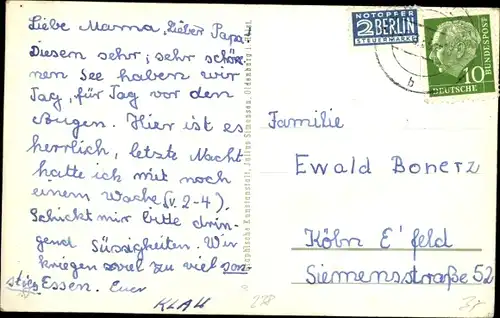 Liebe Mama, Lieber Papa
Diesen sehr, sehr schö-
nen See haben wir
Tag, für Tag vor den
Augen. Hier ist es
herrlich, letzte Nacht
hatte ich mit noch
einem Wache (v. 2-4).
Schickt mir bitte drin-
gend Süssigkeiten. Wir
kriegen soviel zu viel son-
stiges Essen. Euer
KLAU
NOTOPFER
2 BERLIN
STEUERMARKE
10
DEUTSCHE
BUNDESPOST
b
Familie
Ewald Bonerz
Köln E'feld
Siemensstraße 52
Kunstanstalt, Julius Simonsen, Oldenburg i. Holst.
278